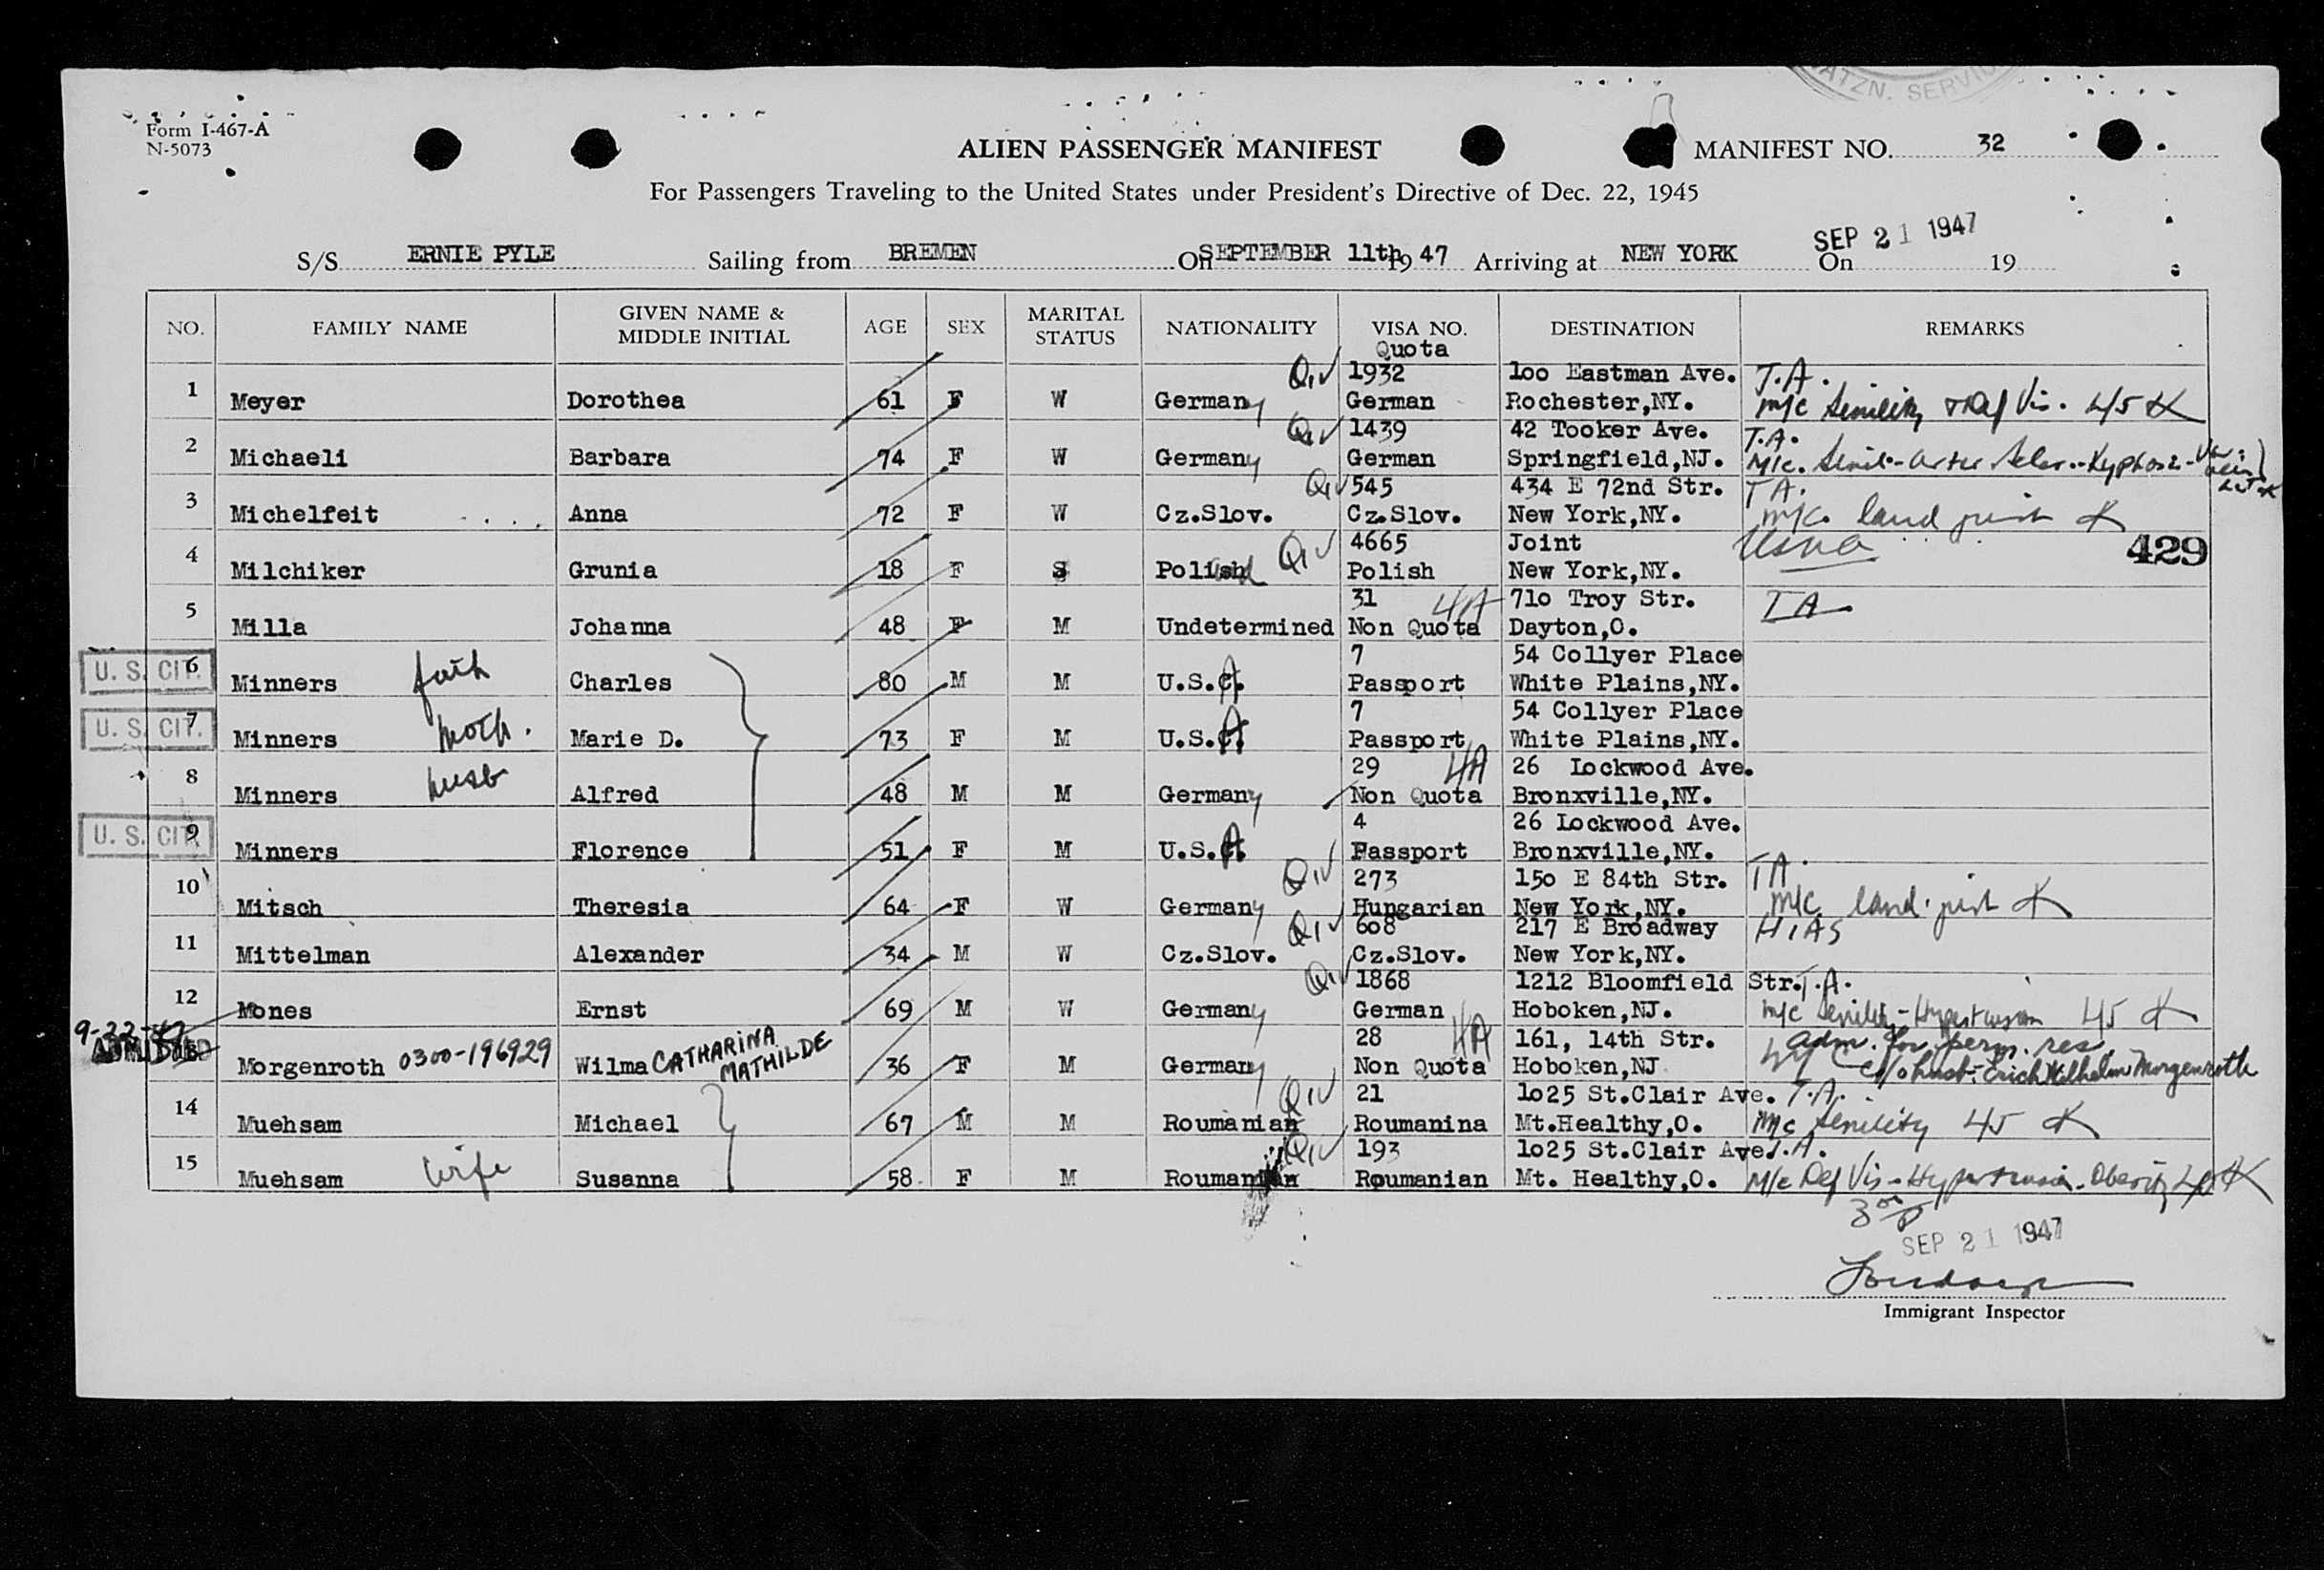 NATZN. SERVICE
Form I-467-A
N-5073
ALIEN PASSENGER MANIFEST
MANIFEST NO. 32
For Passengers Traveling to the United States under President's Directive of Dec. 22, 1945
S/S ERNIE PYLE Sailing from BREMEN On SEPTEMBER 11th 19 47 Arriving at NEW YORK On SEP 21 1947 19
NO. FAMILY NAME GIVEN NAME & MIDDLE INITIAL AGE SEX MARITAL STATUS NATIONALITY VISA NO. Quota DESTINATION REMARKS
QIV 1932 100 Eastman Ave. T.A.
1 Meyer Dorothea 61 F W Germany German Rochester,NY. M/C Senility Def Vis. 4/5
QIV 1439 42 Tooker Ave. T.A.
2 Michaeli Barbara 74 F W Germany German Springfield,NJ. M/C. Senil.-Arter Scler.-Kyphosis
QIV 545 434 E 72nd Str. TA.
3 Michelfeit Anna 72 F W Cz.Slov. Cz.Slov. New York,NY. M/C. land
QIV 4665 Joint Usna 429
4 Milchiker Grunia 18 F S Polish Polish New York,NY.
31 4A 710 Troy Str. TA
5 Milla Johanna 48 F M Undetermined Non Quota Dayton,O.
7 54 Collyer Place
U. S. CIT. 6 Minners fath Charles 80 M M U.S.A. Passport White Plains,NY.
7 54 Collyer Place
U. S. CIT. 7 Minners moth. Marie D. 73 F M U.S.A. Passport White Plains,NY.
29 4A 26 Lockwood Ave.
8 Minners husb Alfred 48 M M Germany Non Quota Bronxville,NY.
4 26 Lockwood Ave.
U. S. CIT. 9 Minners Florence 51 F M U.S.A. Passport Bronxville,NY.
QIV 273 150 E 84th Str. TA.
10 Mitsch Theresia 64 F W Germany Hungarian New York,NY. M/C land.
QIV 608 217 E Broadway HIAS
11 Mittelman Alexander 34 M W Cz.Slov. Cz.Slov. New York,NY.
QIV 1868 1212 Bloomfield Str. T.A.
12 Mones Ernst 69 M W Germany German Hoboken,NJ. M/C Senility-Hypertension 4/5
9-22-47 28 4A 161, 14th Str. Adm. for perm. res.
ADMITTED Morgenroth 0300-196929 Wilma CATHARINA MATHILDE 36 F M Germany Non Quota Hoboken,NJ c/o husb: Erich Wilhelm Morgenroth
QIV 21 1025 St.Clair Ave. T.A.
14 Muehsam Michael 67 M M Roumanian Roumanina Mt.Healthy,O. M/C Senility 4/5
QIV 193 1025 St.Clair Ave. T.A.
15 Muehsam wife Susanna 58 F M Roumanian Roumanian Mt. Healthy,O. M/C Def Vis-Hypertension-Obesity
SEP 21 1947
Immigrant Inspector